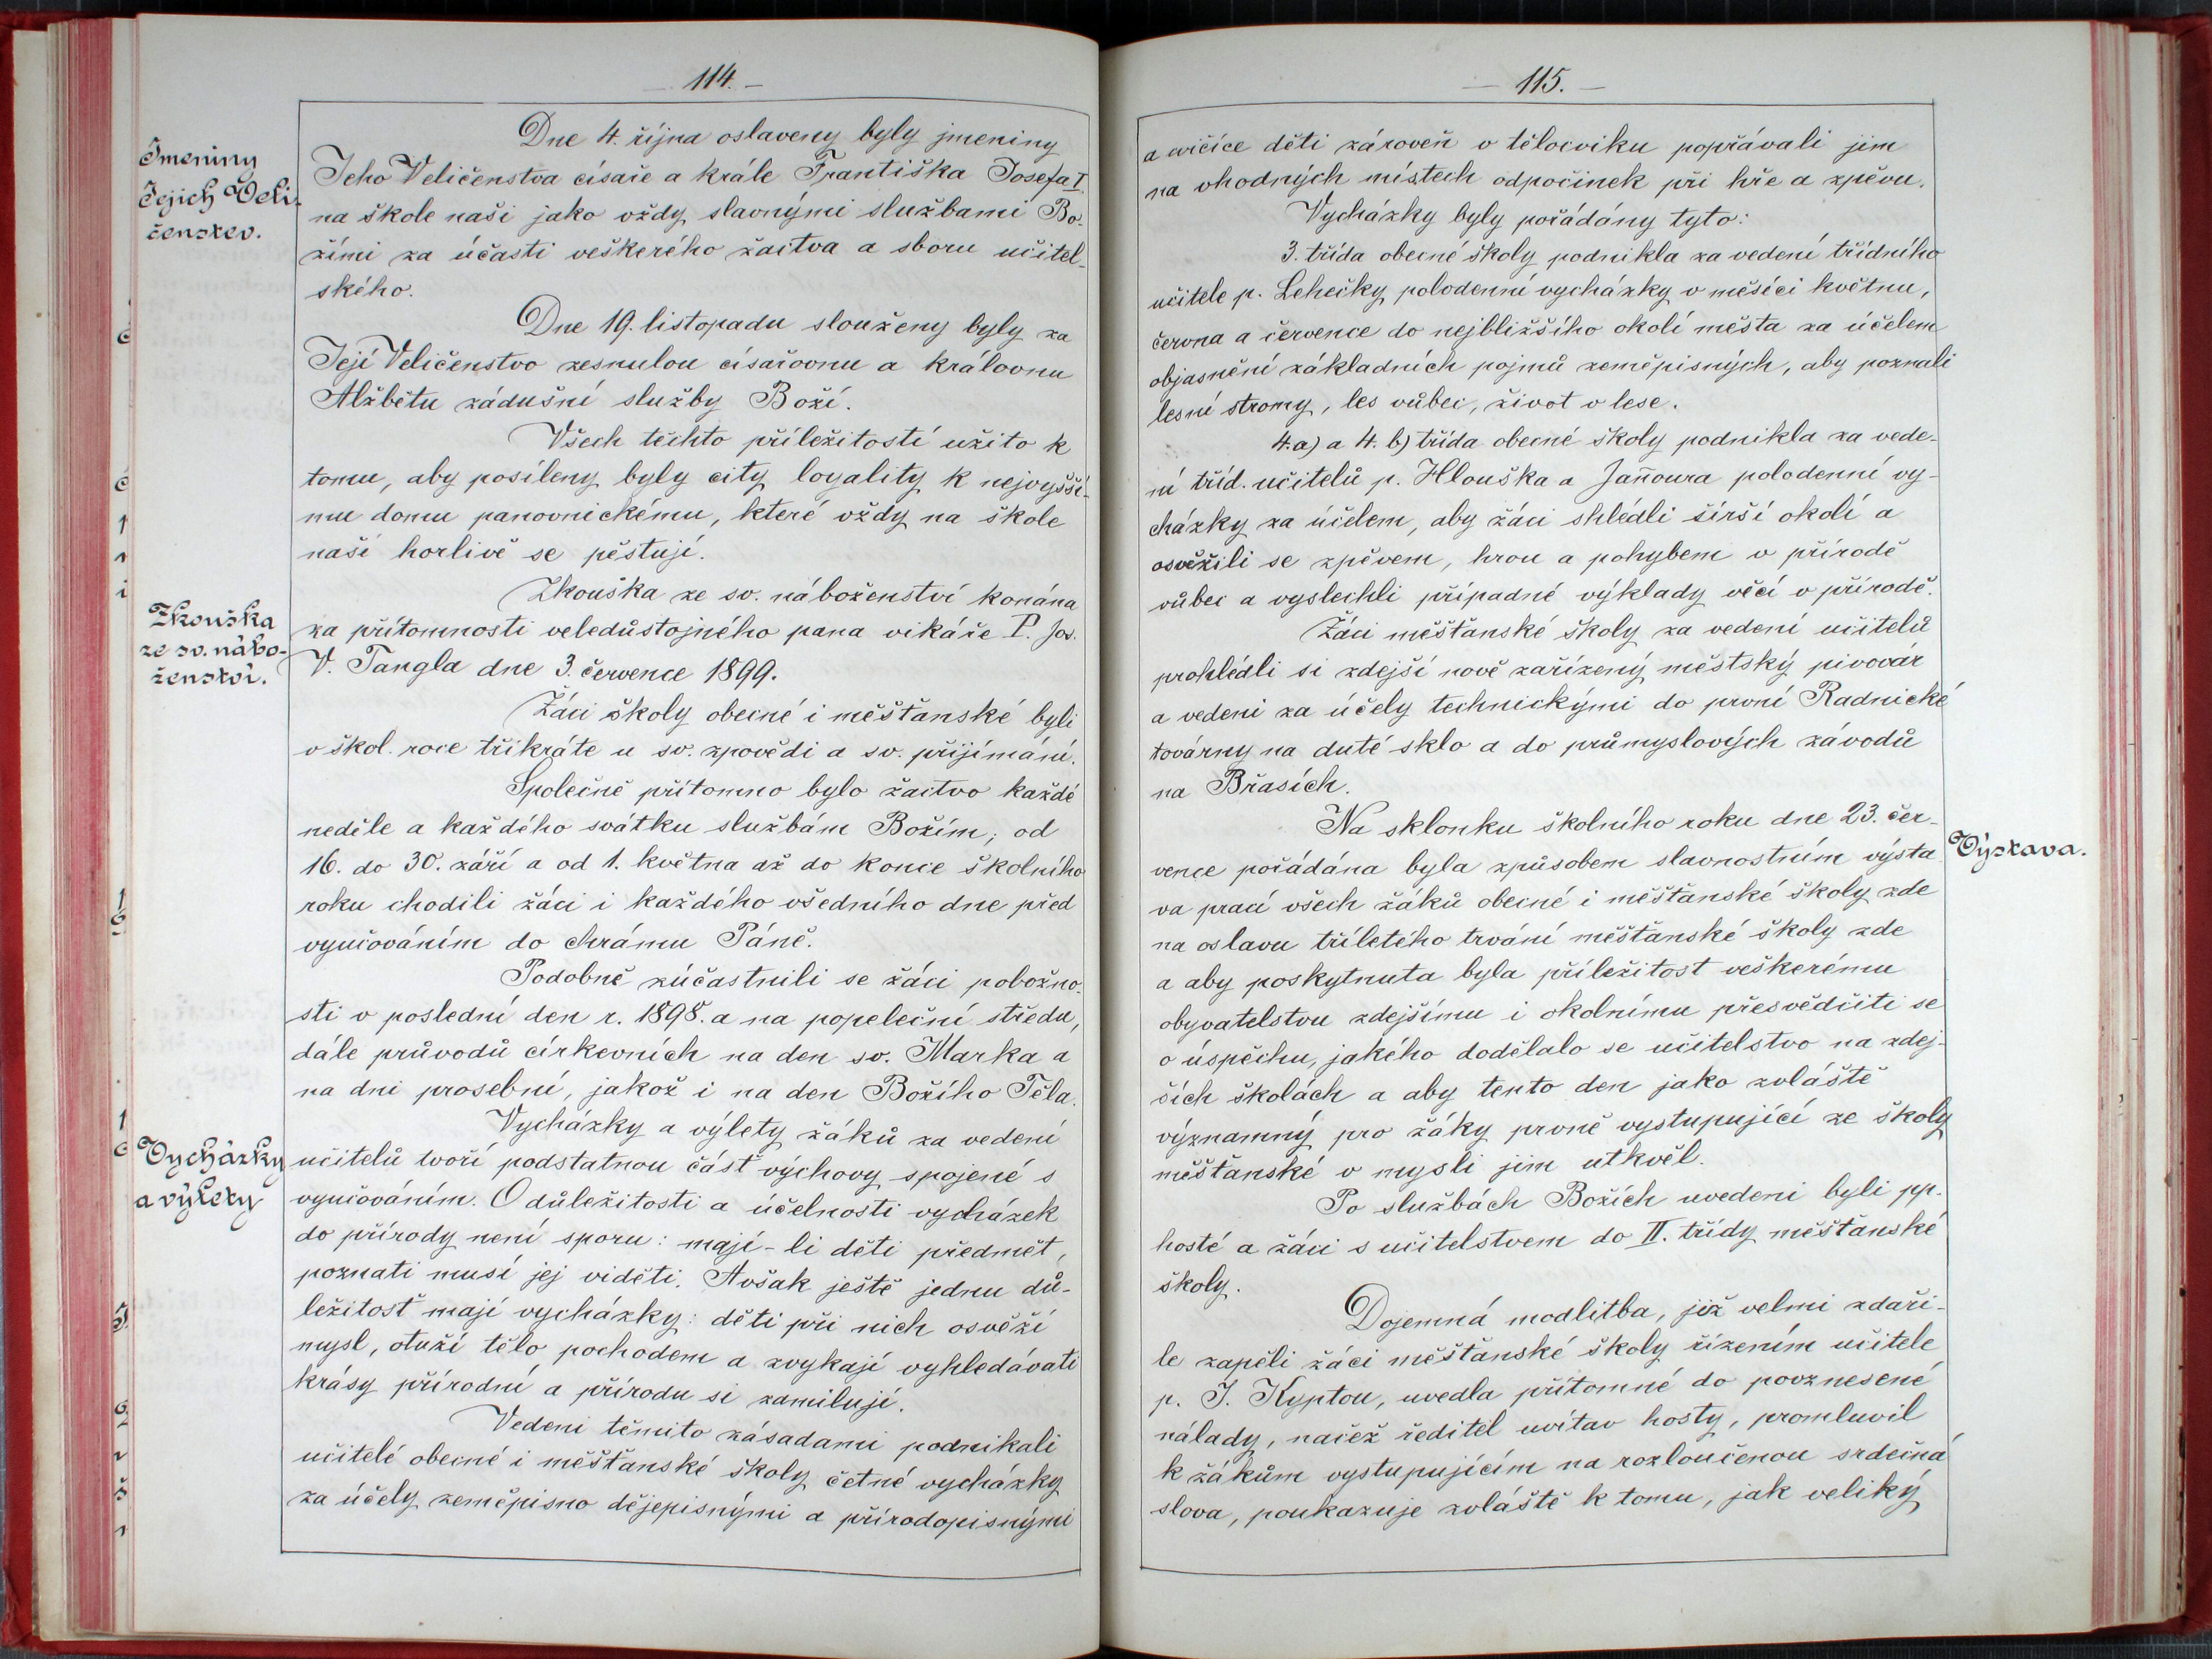 114.
Jmeniny
Jejich Veli-
čenstev.
Dne 4. října oslaveny byly jmeniny
Jeho Veličenstva císaře a krále Františka Josefa I.
na škole naší jako vždy slavnými službami Bo-
žími za účasti veškerého žactva a sboru učitel-
ského.
Dne 19. listopadu slouženy byly za
Její Veličenstvo zesnulou císařovnu a královnu
Alžbětu zádušní služby Boží.
Všech těchto příležitostí užito k
tomu, aby posíleny byly city loyality k nejvyšší-
mu domu panovnickému, které vždy na škole
naší horlivě se pěstují.
Zkouška
ze sv. nábo-
ženství.
Zkouška ze sv. náboženství konána
za přítomnosti veledůstojného pana vikáře P. Jos.
V. Tangla dne 3. července 1899.
Žáci školy obecné i měšťanské byli
v škol. roce třikráte u sv. zpovědi a sv. přijímání.
Společně přítomno bylo žactvo každé
neděle a každého svátku službám Božím; od
16. do 30. září a od 1. května až do konce školního
roku chodili žáci i každého všedního dne před
vyučováním do chrámu Páně.
Podobně zúčastnili se žáci pobožno-
sti v poslední den r. 1898. a na popeleční středu,
dále průvodů církevních na den sv. Marka a
na dni prosebné, jakož i na den Božího Těla.
Vycházky
a výlety
Vycházky a výlety žáků za vedení
učitelů tvoří podstatnou část výchovy spojené s
vyučováním. O důležitosti a účelnosti vycházek
do přírody není sporu: mají-li děti předmět,
poznati musí jej viděti. Avšak ještě jednu dů-
ležitost mají vycházky: děti při nich osvěží
mysl, otuží tělo pochodem a zvykají vyhledávati
krásy přírodní a přírodu si zamilují.
Vedeni těmito zásadami podnikali
učitelé obecné i měšťanské školy četné vycházky
za účely zeměpisno dějepisnými a přírodopisnými
115.
a cvičíce děti zároveň v tělocviku popřávali jim
na vhodných místech odpočinek při hře a zpěvu.
Vycházky byly pořádány tyto:
3. třída obecné školy podnikla za vedení třídního
učitele p. Lehečky polodenní vycházky v měsíci květnu,
června a července do nejbližšího okolí města za účelem
objasnění základních pojmů zeměpisných, aby poznali
lesní stromy, les vůbec, život v lese.
4. a) a 4. b) třída obecné školy podnikla za vede-
ní tříd. učitelů p. Hlouška a Jaňoura polodenní vy-
cházky za účelem, aby žáci shlédli širší okolí a
osvěžili se zpěvem, hrou a pohybem v přírodě
vůbec a vyslechli případné výklady věcí v přírodě.
Žáci měšťanské školy za vedení učitelů
prohlédli si zdejší nově zařízený městský pivovár
a vedeni za účely technickými do první Radnické
továrny na duté sklo a do průmyslových závodů
na Břasích.
Na sklonku školního roku dne 23. čer-
vence pořádána byla způsobem slavnostním výsta
Výstava.
va prací všech žáků obecné i měšťanské školy zde
na oslavu tříletého trvání měšťanské školy zde
a aby poskytnuta byla příležitost veškerému
obyvatelstvu zdejšímu i okolnímu přesvědčiti se
o úspěchu, jakého dodělalo se učitelstvo na zdej-
ších školách a aby tento den jako zvláště
významný pro žáky prvně vystupující ze školy
měšťanské v mysli jim utkvěl.
Po službách Božích uvedeni byli pp.
hosté a žáci s učitelstvem do II. třídy měšťanské
školy.
Dojemná modlitba, již velmi zdaři-
le zapěli žáci měšťanské školy řízením učitele
p. J. Kyptou, uvedla přítomné do povznesené
nálady, načež ředitel uvítav hosty, promluvil
k žákům vystupujícím na rozloučenou srdečná
slova, poukazuje zvláště k tomu, jak veliký